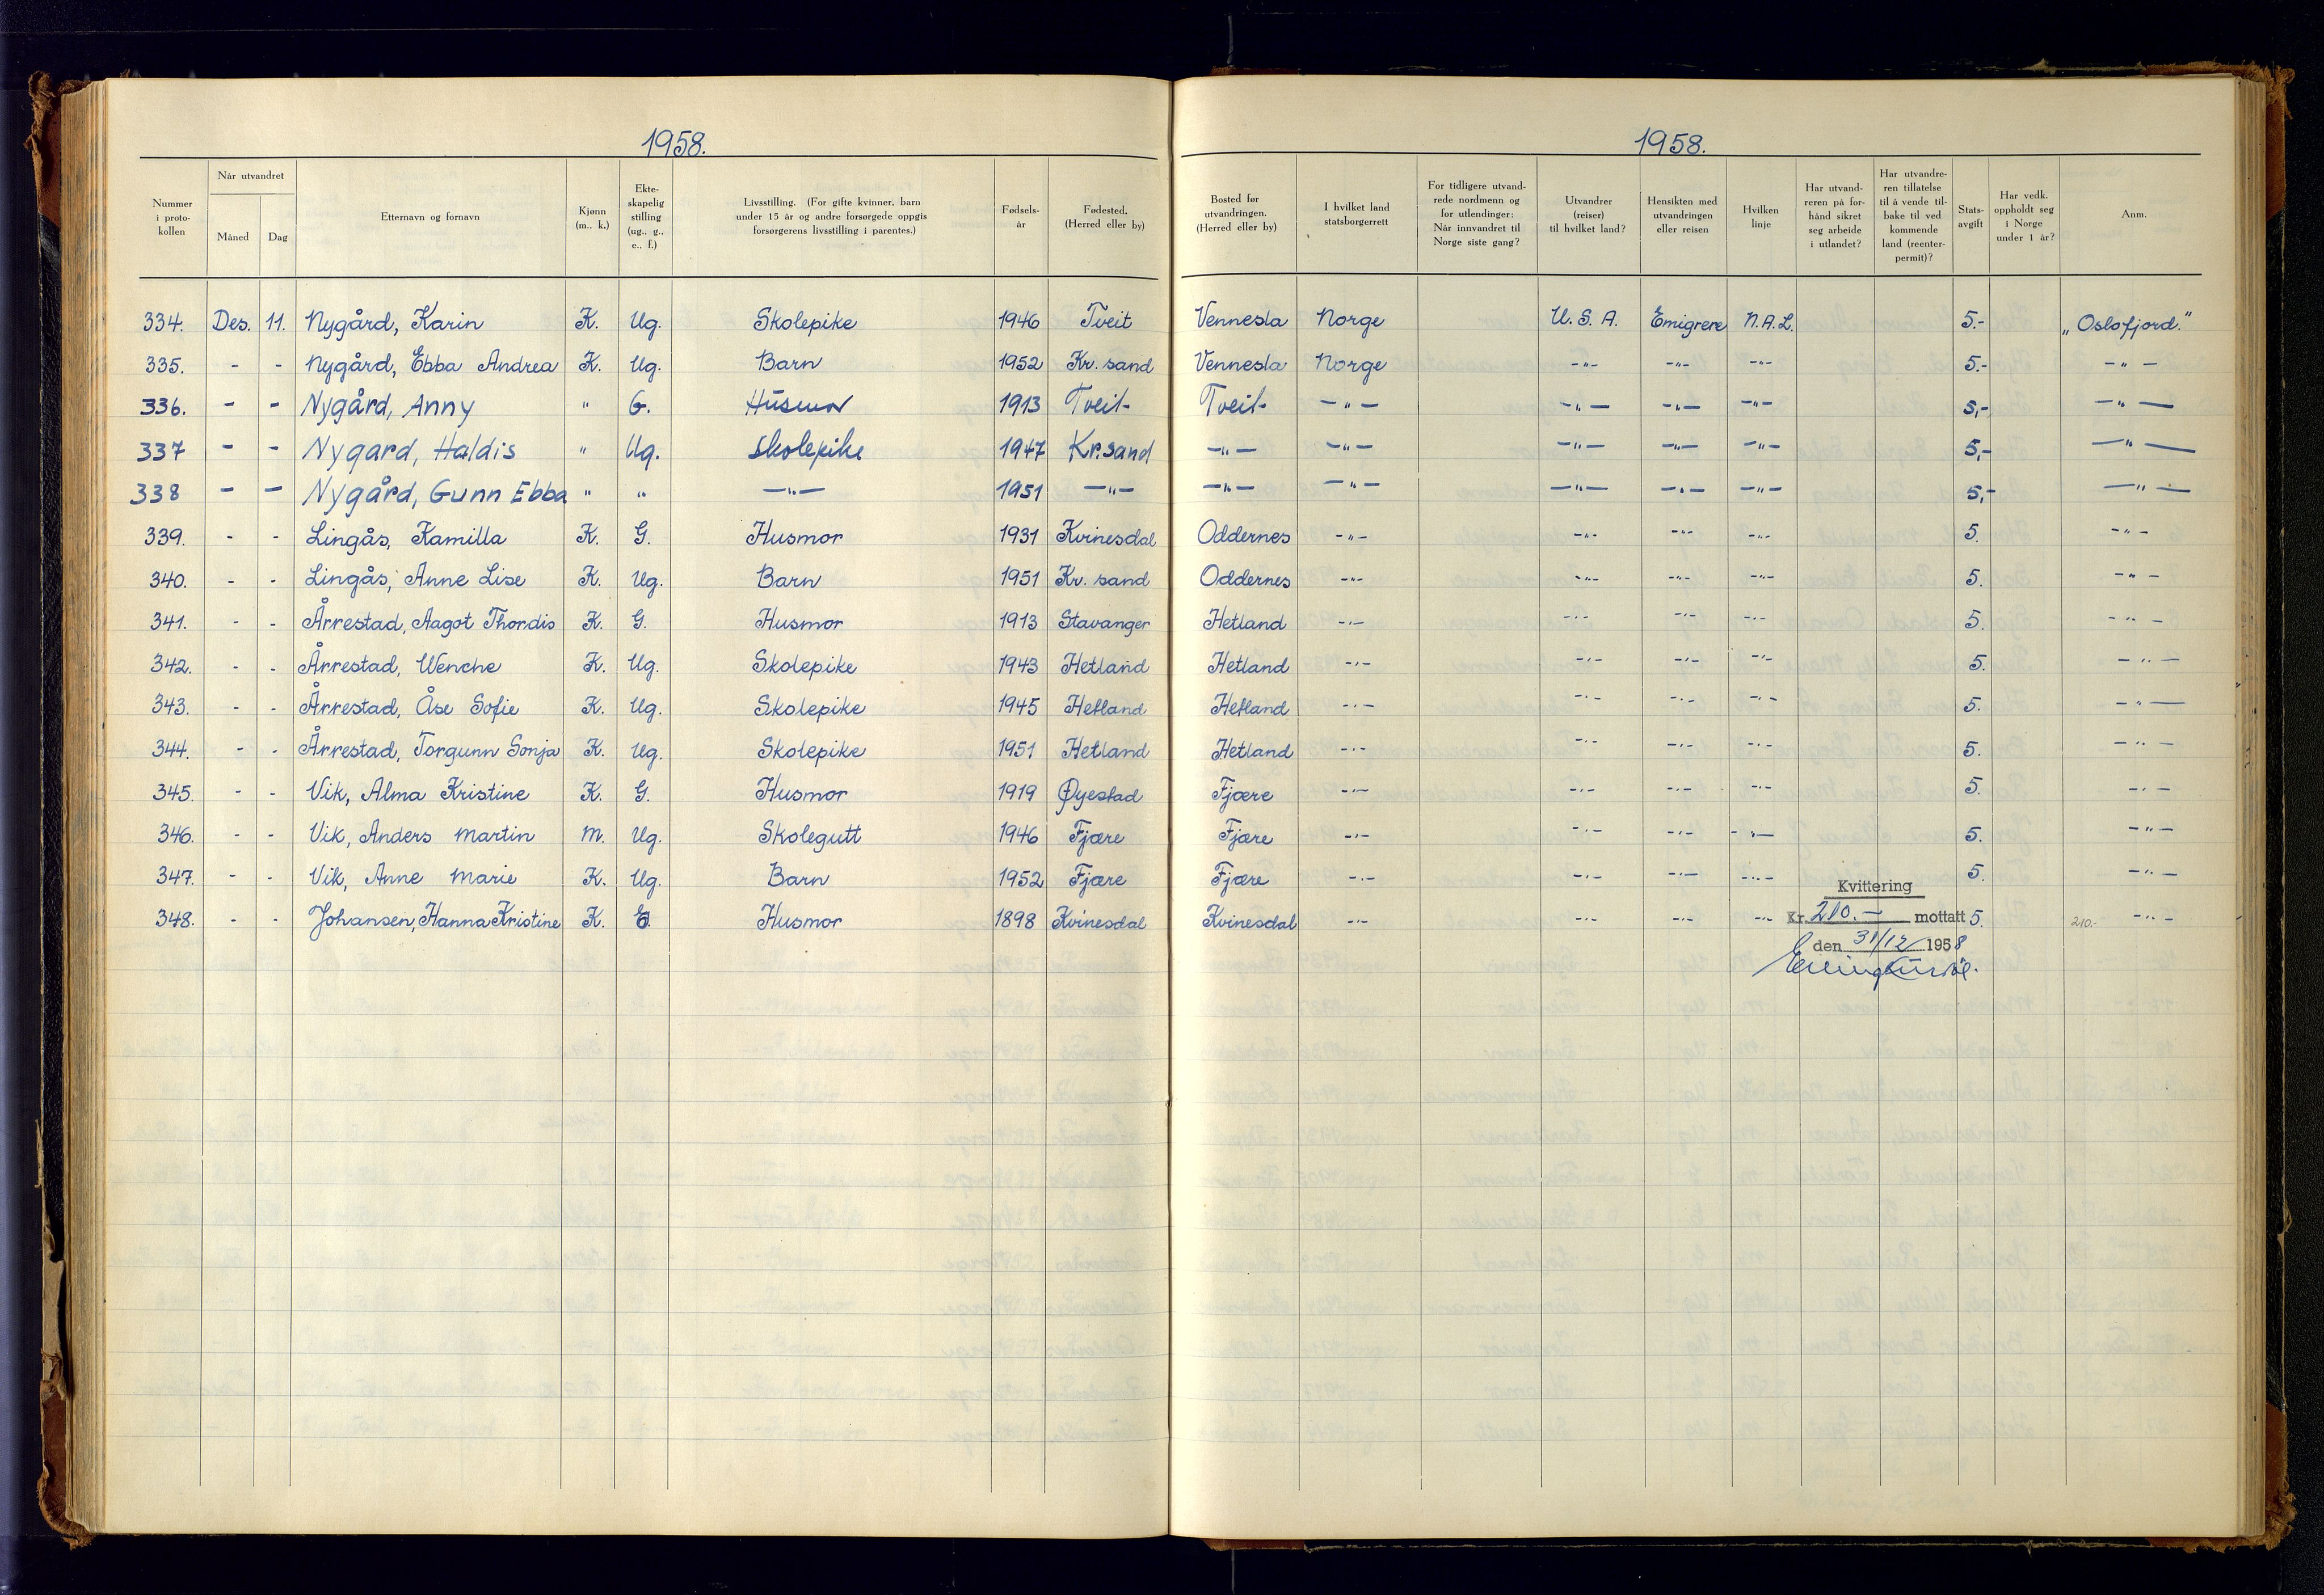 1958.
Nummer i proto-kollen | Når utvandret Måned Dag | Etternavn og fornavn | Kjønn (m., k.) | Ekte-skapelig stilling (ug., g., e., f.) | Livsstilling. (For gifte kvinner, barn under 15 år og andre forsørgede oppgis forsørgerens livsstilling i parentes.) | Fødsels-år | Fødested. (Herred eller by)
1958.
Bosted før utvandringen. (Herred eller by) | I hvilket land statsborgerrett | For tidligere utvand-rede nordmenn og for utlendinger: Når innvandret til Norge siste gang? | Utvandrer (reiser) til hvilket land? | Hensikten med utvandringen eller reisen | Hvilken linje | Har utvand-reren på for-hånd sikret seg arbeide i utlandet? | Har utvandre-ren tillatelse til å vende til-bake til ved kommende land (reenter-permit)? | Stats-avgift | Har vedk. oppholdt seg i Norge under 1 år? | Anm.
334. Des. 11. Nygård, Karin K. Ug. Skolepike 1946 Tveit Vennesla Norge U.S.A. Emigrere N.A.L. 5.- „Oslofjord."
335. - - Nygård, Ebba Andrea K. Ug. Barn 1952 Kr. sand Vennesla Norge -"- -"- -"- 5.- -"-
336. - - Nygård, Anny " G. Husmor 1913 Tveit Tveit -"- -"- -"- -"- 5,- -"-
337 - - Nygard, Haldis " Ug. Skolepike 1947 Kr.sand -"- -"- -"- -"- -"- 5,- -"-
338 - - Nygård, Gunn Ebba " " -"- 1951 -"- -"- -"- -"- -"- -"- 5,- -"-
339. - - Lingås, Kamilla K. G. Husmor 1931 Kvinesdal Oddernes -"- -"- -"- -"- 5. -"-
340. - - Lingås, Anne Lise K. Ug. Barn 1951 Kr. sand Oddernes -"- -"- -"- -"- 5. -"-
341. - - Årrestad, Aagot Thordis K. G. Husmor 1913 Stavanger Hetland -"- -"- -"- -"- 5. -"-
342. - - Årrestad, Wenche K. Ug. Skolepike 1943 Hetland Hetland -"- -"- -"- -"- 5. -"-
343. - - Årrestad, Åse Sofie K. Ug. Skolepike 1945 Hetland Hetland -"- -"- -"- -"- 5. -"-
344. - - Årrestad, Torgunn Sonja K. Ug. Skolepike 1951 Hetland Hetland -"- -"- -"- -"- 5. -"-
345. - - Vik, Alma Kristine K. G. Husmor 1919 Øyestad Fjære -"- -"- -"- -"- 5. -"-
346. - - Vik, Anders Martin M. Ug. Skolegutt 1946 Fjære Fjære -"- -"- -"- -"- 5. -"-
347. - - Vik, Anne Marie K. Ug. Barn 1952 Fjære Fjære -"- -"- -"- -"- 5. -"-
Kvittering
348. - - Johansen, Hanna Kristine K. E. Husmor 1898 Kvinesdal Kvinesdal -"- -"- -"- -"- Kr. 210.- mottatt 5. 210.- -"-
den 31/12 1958